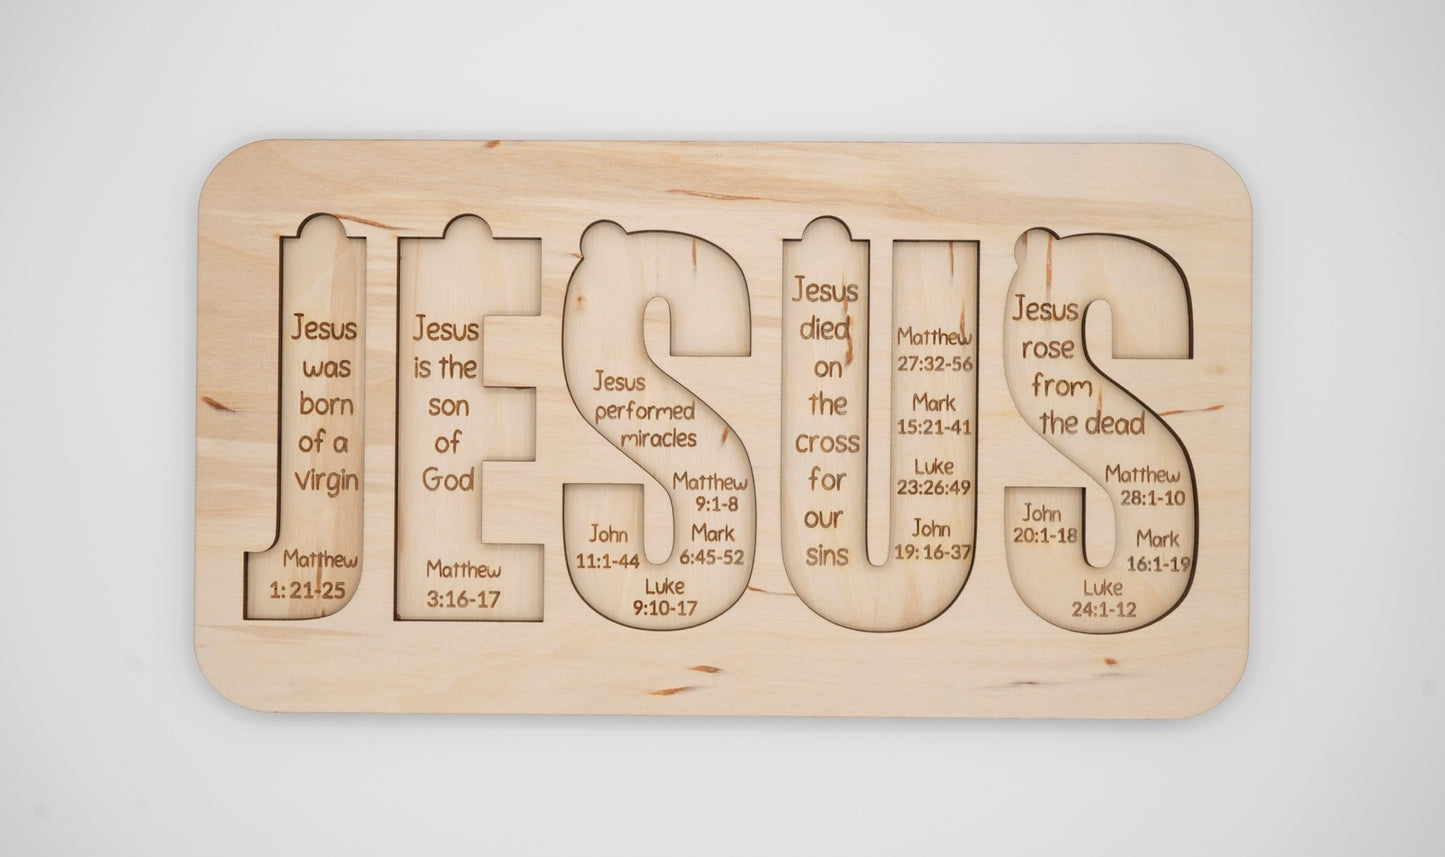 Jesus
was
born
of a
virgin
Matthew
1:21-25
Jesus
is the
son
of
God
Matthew
3:16-17
Jesus
performed
miracles
Matthew
9:1-8
Mark
6:45-52
John
11:1-44
Luke
9:10-17
Jesus
died
on
the
cross
for
our
sins
Matthew
27:32-56
Mark
15:21-41
Luke
23:26:49
John
19:16-37
Jesus
rose
from
the dead
Matthew
28:1-10
John
20:1-18
Mark
16:1-19
Luke
24:1-12